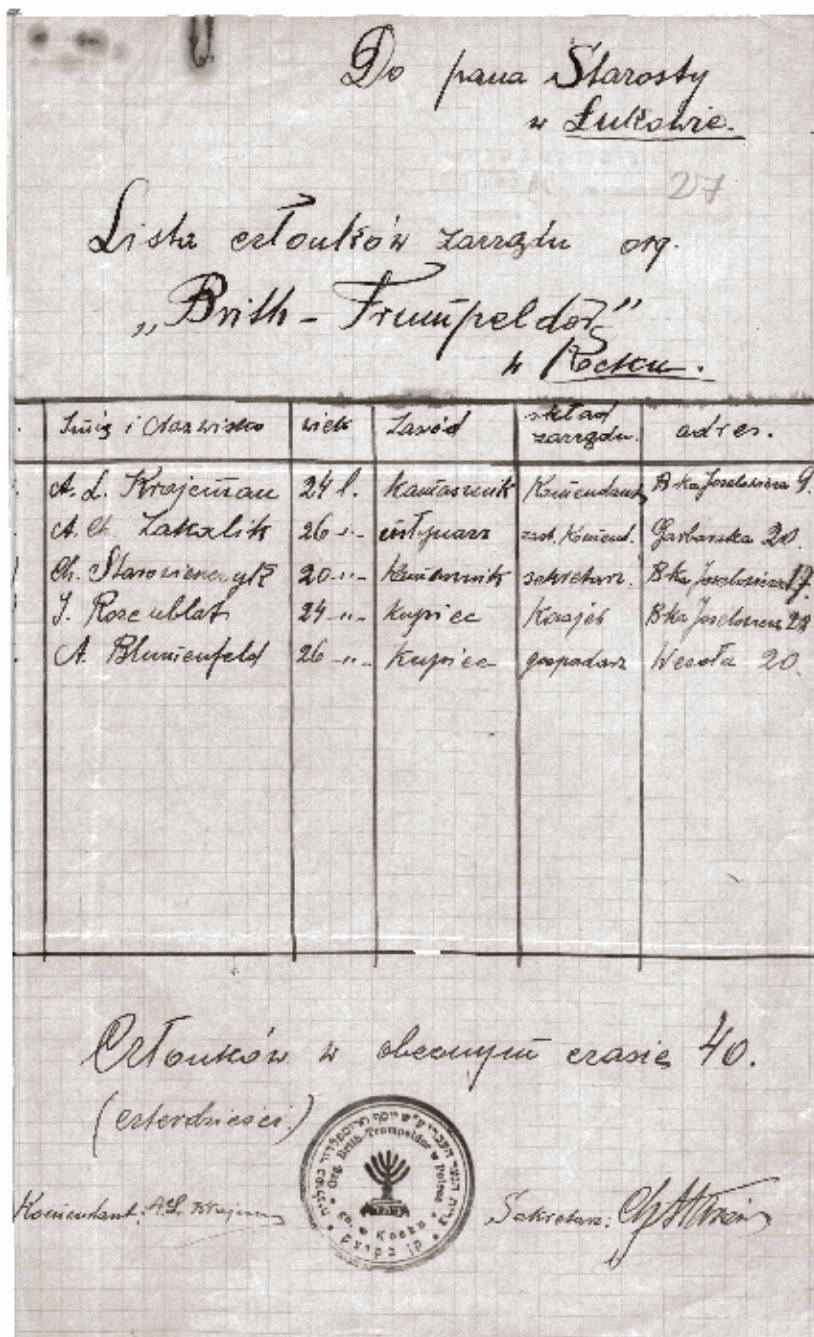 Do pana Starosty
w Łukowie.
27
Lista członków zarządu org.
„Brith-Trumpeldor”
w Kocku.
Imię i Nazwisko wiek Zawód skład zarządu. adres.
A. L. Krajcman 24 l. Kamasznik Komendant B-ka Joselewicza 9.
A. Ch. Zakalik 26 -„- zast. Komend. Garbarska 20.
Ch. 20 -„- Kamasznik sekretarz. B-ka Joselewicza 17.
J. Rosenblat 24 -„- Kupiec Kasjer B-ka Joselewicza
A. Blumenfeld 26 -„- Kupiec gospodarz Wesoła 20.
Członków w obecnym czasie 40.
(czterdzieści)
Org. Brith-Trumpeldor w Polsce
w Kocku
Komendant: A. L.
Sekretarz: